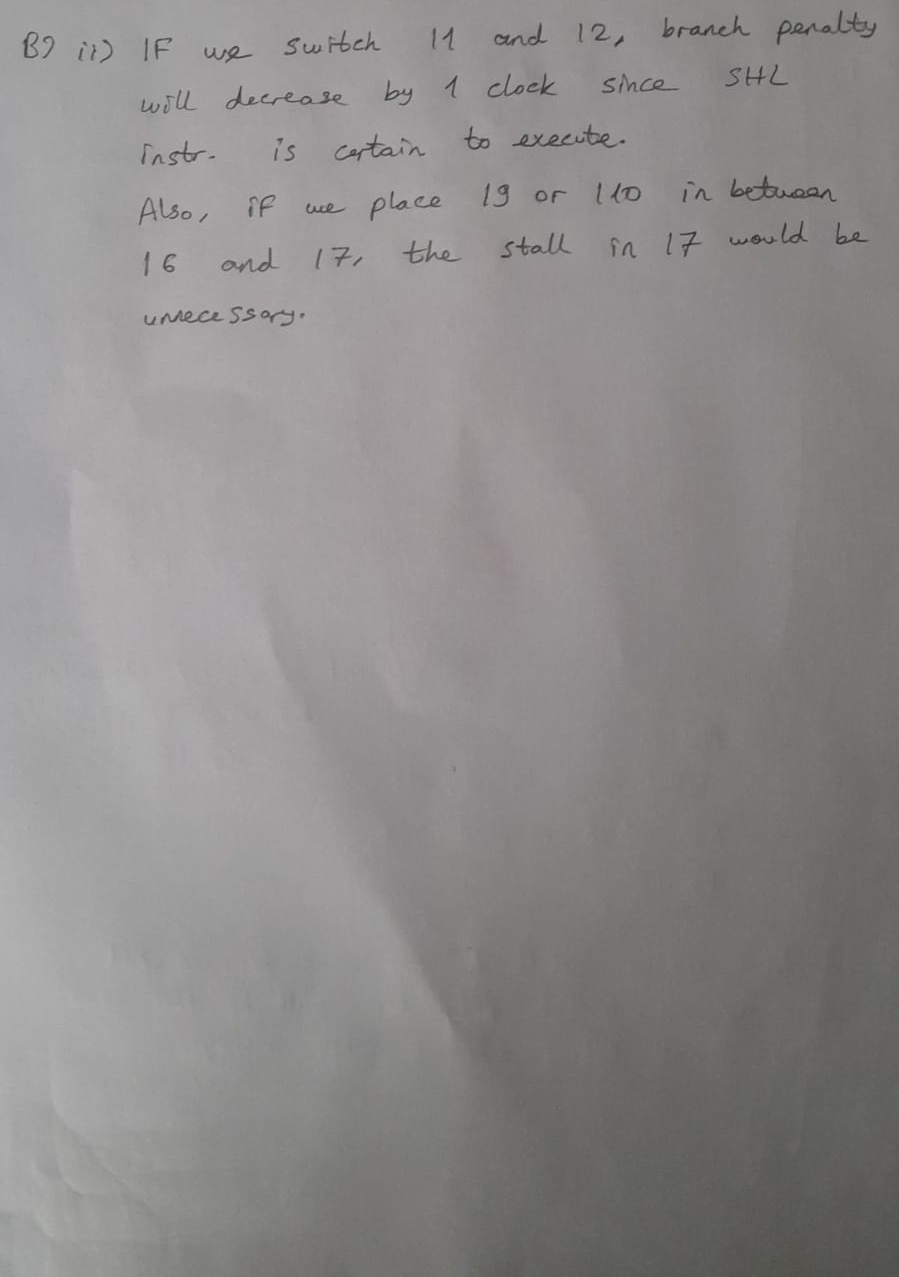 B) ii) IF we switch I1 and I2, branch penalty
will decrease by 1 clock since SHL
instr. is certain to execute.
Also, if we place I9 or I10 in between
I6 and I7, the stall in I7 would be
unnecessary.